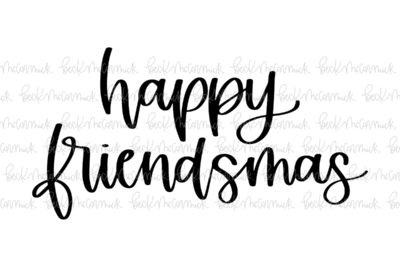 happy
friendsmas